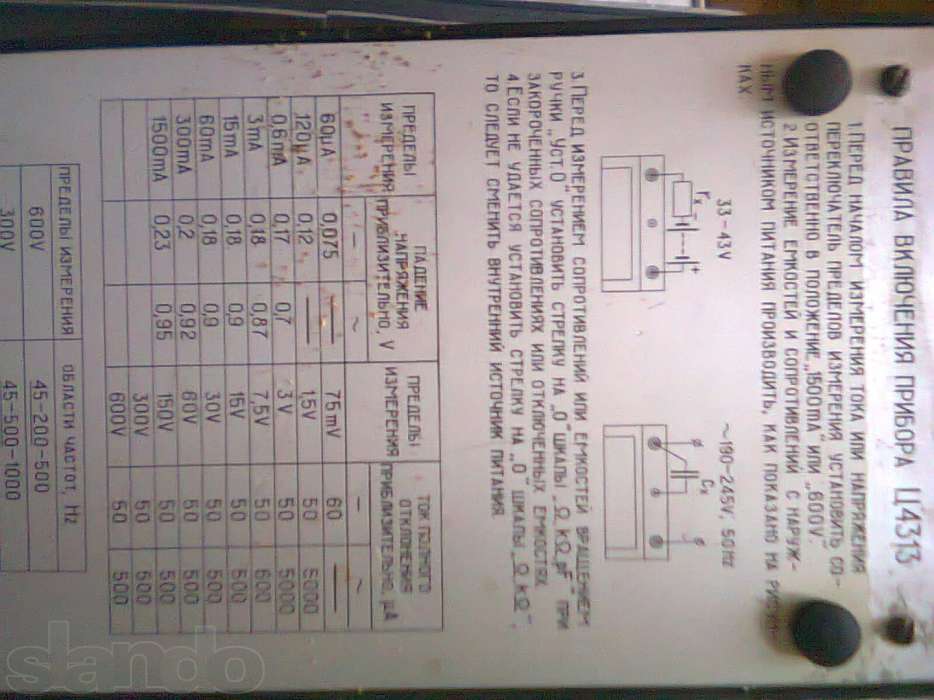 ПРАВИЛА ВКЛЮЧЕНИЯ ПРИБОРА Ц4313
1.ПЕРЕД НАЧАЛОМ ИЗМЕРЕНИЯ ТОКА ИЛИ НАПРЯЖЕНИЯ
ПЕРЕКЛЮЧАТЕЛЬ ПРЕДЕЛОВ ИЗМЕРЕНИЯ УСТАНОВИТЬ СО-
ОТВЕТСТВЕННО В ПОЛОЖЕНИЕ „1500mA" ИЛИ „600V".
2.ИЗМЕРЕНИЕ ЕМКОСТЕЙ И СОПРОТИВЛЕНИЙ С НАРУЖ-
НЫМ ИСТОЧНИКОМ ПИТАНИЯ ПРОИЗВОДИТЬ, КАК ПОКАЗАНО НА РИСУН-
КАХ
33-43V ~190-245V, 50Hz
rx + Cx
3.ПЕРЕД ИЗМЕРЕНИЕМ СОПРОТИВЛЕНИЙ ИЛИ ЕМКОСТЕЙ ВРАЩЕНИЕМ
РУЧКИ „УСТ.0" УСТАНОВИТЬ СТРЕЛКУ НА „0" ШКАЛЫ „Ω,kΩ,pF" ПРИ
ЗАКОРОЧЕННЫХ СОПРОТИВЛЕНИЯХ ИЛИ ОТКЛЮЧЕННЫХ ЕМКОСТЯХ.
4.ЕСЛИ НЕ УДАЕТСЯ УСТАНОВИТЬ СТРЕЛКУ НА „0" ШКАЛЫ „Ω,kΩ",
ТО СЛЕДУЕТ СМЕНИТЬ ВНУТРЕННИЙ ИСТОЧНИК ПИТАНИЯ
ПРЕДЕЛЫ ИЗМЕРЕНИЯ ПАДЕНИЕ НАПРЯЖЕНИЯ ПРИБЛИЗИТЕЛЬНО, V ПРЕДЕЛЫ ИЗМЕРЕНИЯ ТОК ПОЛНОГО ОТКЛОНЕНИЯ ПРИБЛИЗИТЕЛЬНО, μA
— ~ — ~
60μA 0,075 — 75mV 60 —
120μA 0,12 — 1,5V 50 5000
0,6mA 0,17 0,7 3V 50 5000
3mA 0,18 0,87 7,5V 50 600
15mA 0,18 0,9 15V 50 500
60mA 0,18 0,9 30V 50 500
300mA 0,2 0,92 60V 50 500
1500mA 0,23 0,95 150V 50 500
300V 50 500
600V 50 500
ПРЕДЕЛЫ ИЗМЕРЕНИЯ ОБЛАСТИ ЧАСТОТ, Hz
600V 45-200-500
300V 45-500-1000
slando